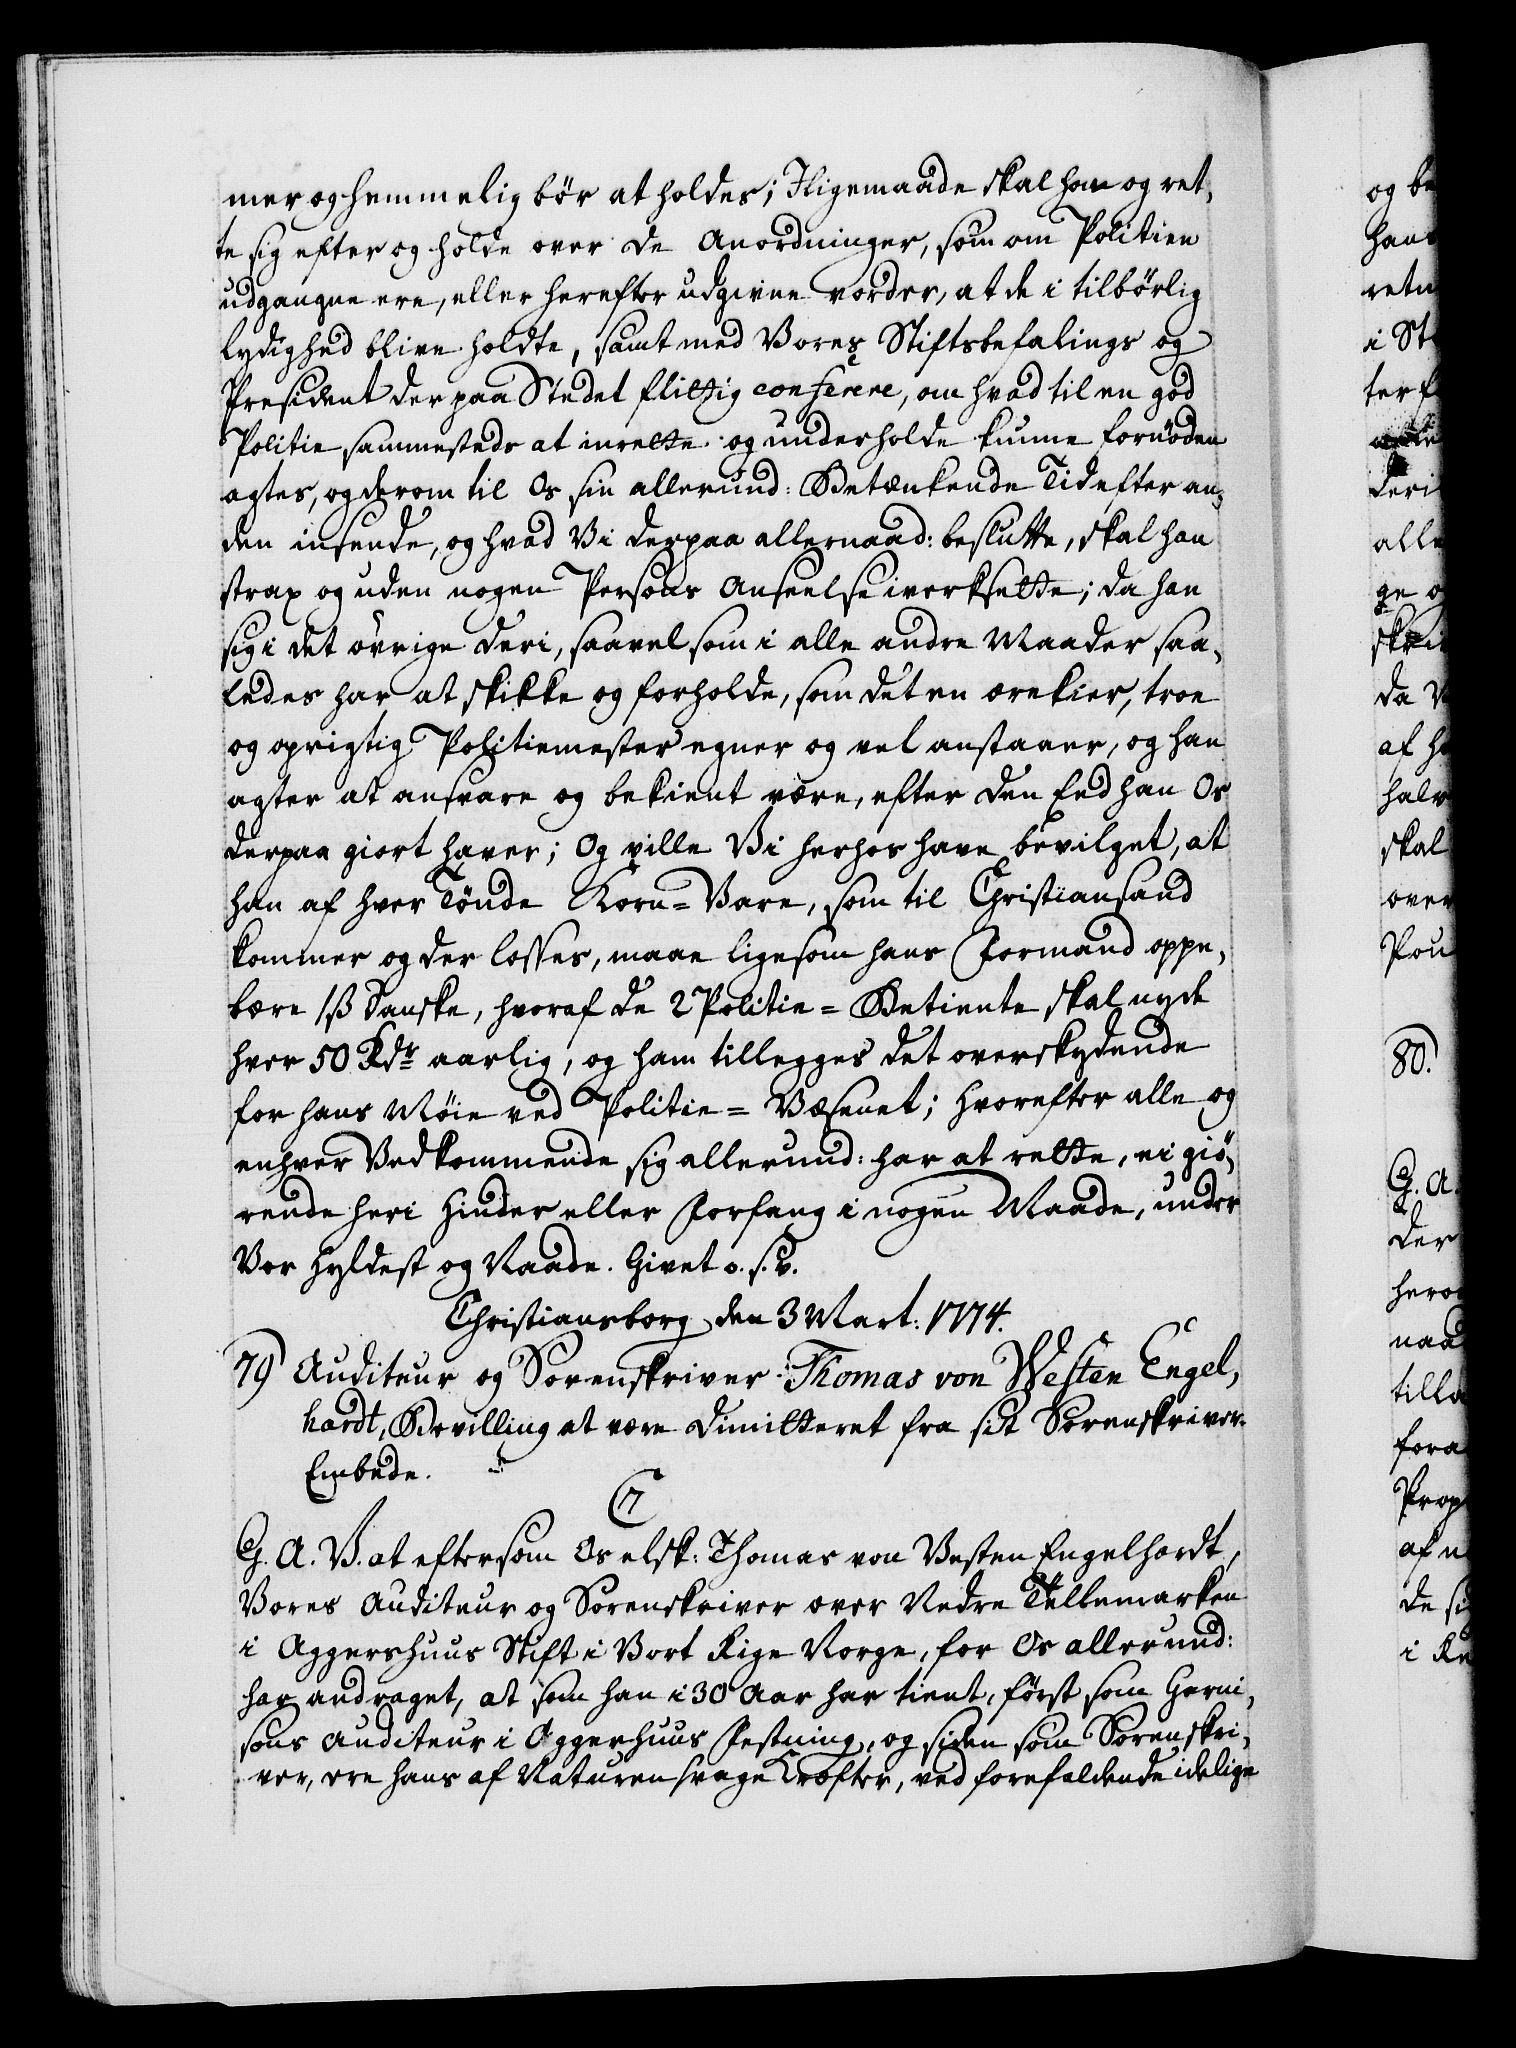 mer og hemmelig bör at holdes; Iligemaade skal han og ret,
te sig efter og holde over de Anordninger, som om Politien
udgangne ere, eller herefter udgivne vorder, at de i tilbörlig
lydighed blive holdte, samt med Vores Stiftsbefalings og
President der paa Stedet flittig conferere, om hvad til en god
Politie sammesteds at inrette og underholde kunne fornöden
agtes, og derom til Os sin allerund: Betænkende Tid efter an,
den insende, og hvad Vi derpaa allernaad: beslutte, skal han
strax og uden nogen Persons Anseelse iverksette; da han
sig i det övrige deri, saavel som i alle andre Maader saa,
ledes har at skikke og forholde, som det en ærekier, troe
og oprigtig Politiemester egner og vel anstaaer, og han
agter at ansvare og bekient være, efter den Eed han Os
derpaa giort haver; Og ville Vi herhos have bevilget, at
han af hver Tönde Korn=Vare, som til Christiansand
kommer og der losses, maae ligesom hans Formand oppe,
bære 1 ß Danske, hvoraf de 2 Politie=Betiente skal nyde
hver 50 Rdr aarlig, og ham tillegges det overskydende
for hans Möie ved Politie=Væsenet; hvorefter alle og
enhver Vedkommende sig allerund: har at rette, ei giö,
rende heri Hinder eller Forfang i nogen Maade, under
Vor Hyldest og Naade. Givet o. s. v.
Christiansborg den 3 Mart: 1774.
79) Auditeur og Sorenskriver Thomas von Westen Engel,
hardt, Bevilling at være dimitteret fra sit Sorenskriver
Embede.
C7
G. A. V. at eftersom Os elsk: Thomas von Westen Engelhardt,
Vores Auditeur og Sorenskriver over Nedre Tellemarken
i Aggershuus Stift i Vort Rige Norge, for Os allerund:
har andraget, at som han i 30 Aar har tient, först som Garni,
sons Auditeur i Aggerhuus Festning, og siden som Sorenskri,
ver, ere hans af Naturen svage Kræfter, ved forefaldende idelige
og be
hans
retn
i St
ter f
deri
alle
ge o
skri
da V
af ha
halv
skal
over
Pou
80.
G. A.
der
hero
naad
tilla
fora
Prop
af n
de si
i Re